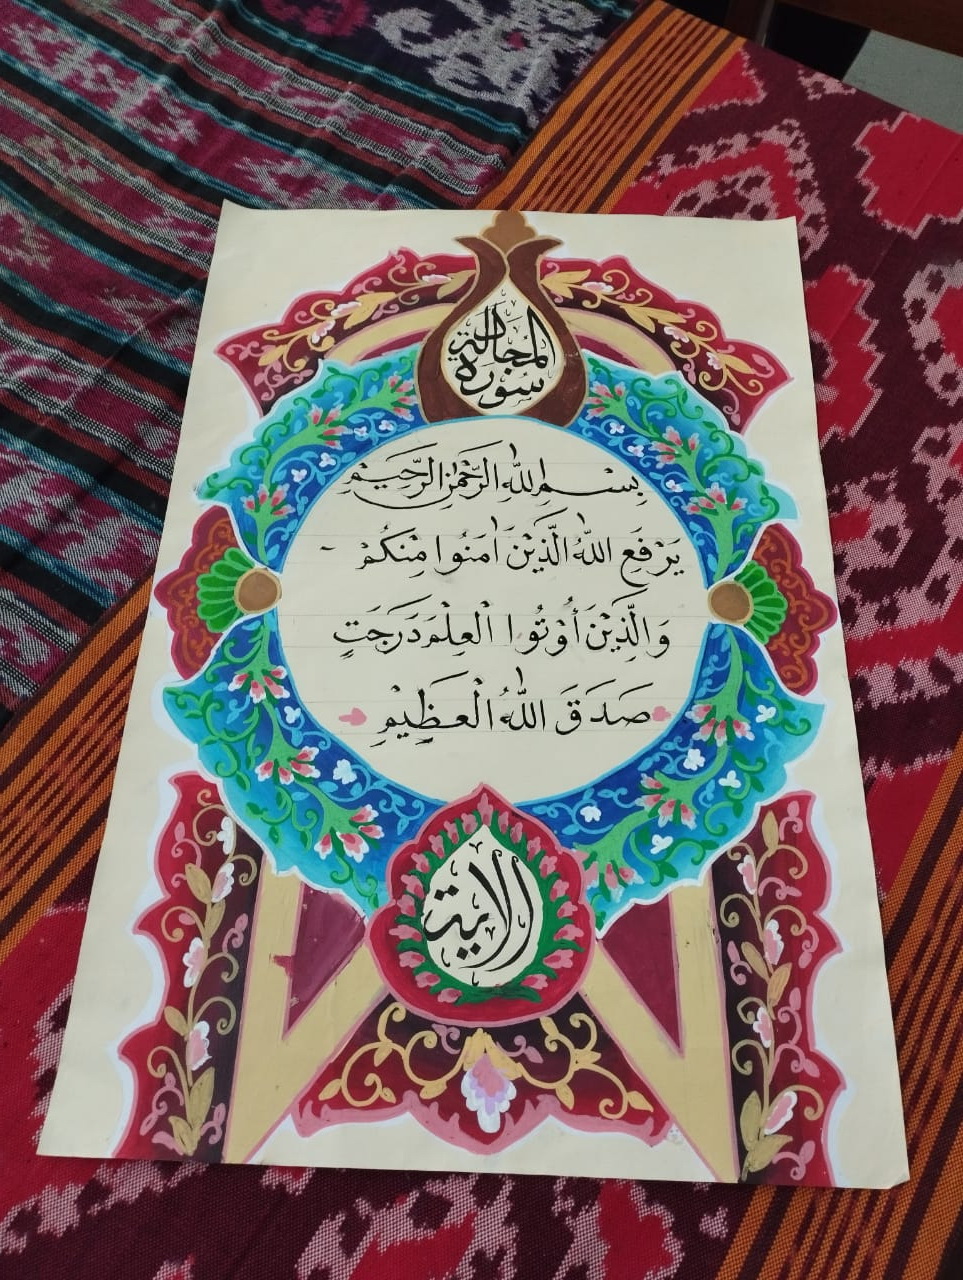 سورة المجادلة
بِسْمِ اللهِ الرَّحْمٰنِ الرَّحِيْمِ
يَرْفَعِ اللهُ الَّذِيْنَ اٰمَنُوا مِنْكُمْ -
وَالَّذِيْنَ أُوْتُوا الْعِلْمَ دَرَجٰتٍ
صَدَقَ اللهُ الْعَظِيْمِ
الاية